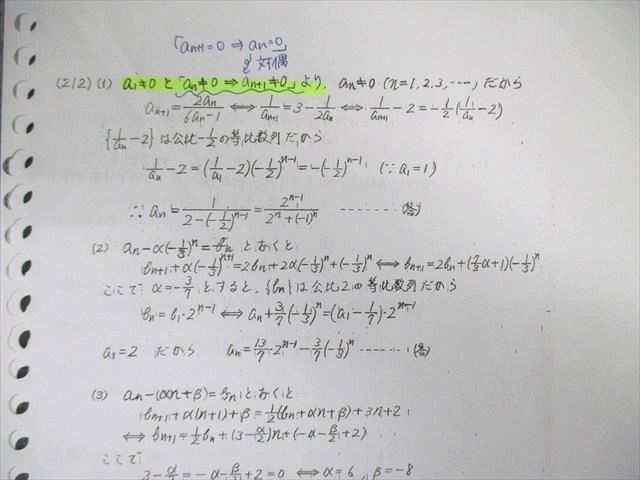 「an+1=0 ⇒ an=0」
対偶
(212) (1) a1≠0 と「an≠0 ⇒ an+1≠0」より, an≠0 (n=1,2,3,…) だから
an+1 = 2an/(6an-1) ⇔ 1/an+1 = 3 - 1/2an ⇔ 1/an+1 - 2 = -1/2(1/an - 2)
{1/an - 2} は公比 -1/2 の等比数列だから
1/an - 2 = (1/a1 - 2)(-1/2)^(n-1) = -(-1/2)^(n-1) (∵ a1=1)
∴ an = 1/(2-(-1/2)^(n-1)) = 2^(n-1)/(2^n+(-1)^n) ------- (答)
(2) an - α(-1/3)^n = bn とおくと
bn+1 + α(-1/3)^(n+1) = 2bn + 2α(-1/3)^n + (-1/3)^n ⇔ bn+1 = 2bn + (7/3α+1)(-1/3)^n
ここで α = -3/7 とすると, {bn} は公比2の等比数列だから
bn = b1・2^(n-1) ⇔ an + 3/7(-1/3)^n = (a1 - 1/7)・2^(n-1)
a1=2 だから an = 13/7・2^(n-1) - 3/7(-1/3)^n ------- (答)
(3) an - (αn+β) = bn とおくと
bn+1 + α(n+1) + β = 1/2(bn + αn + β) + 3n + 2
⇔ bn+1 = 1/2bn + (3 - α/2)n + (-α - β/2 + 2)
ここで
3 - α/2 = -α - β/2 + 2 = 0 ⇔ α=6, β=-8